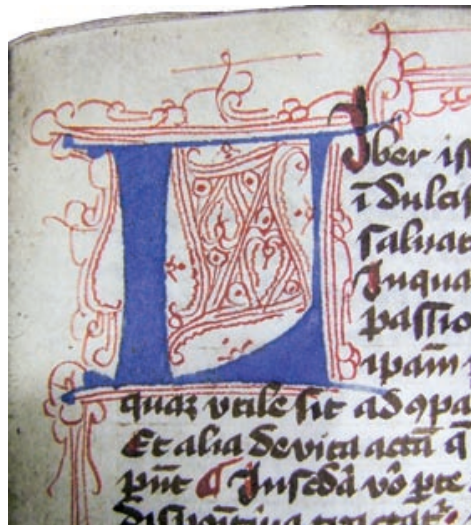 LIber ist
ī dulcis
saluat
Inqua
passio
ipam
quaz vtile sit ad ꝯpa
Et alia de vita actā q̄
pūt ¶ In scdā vo̅ pte